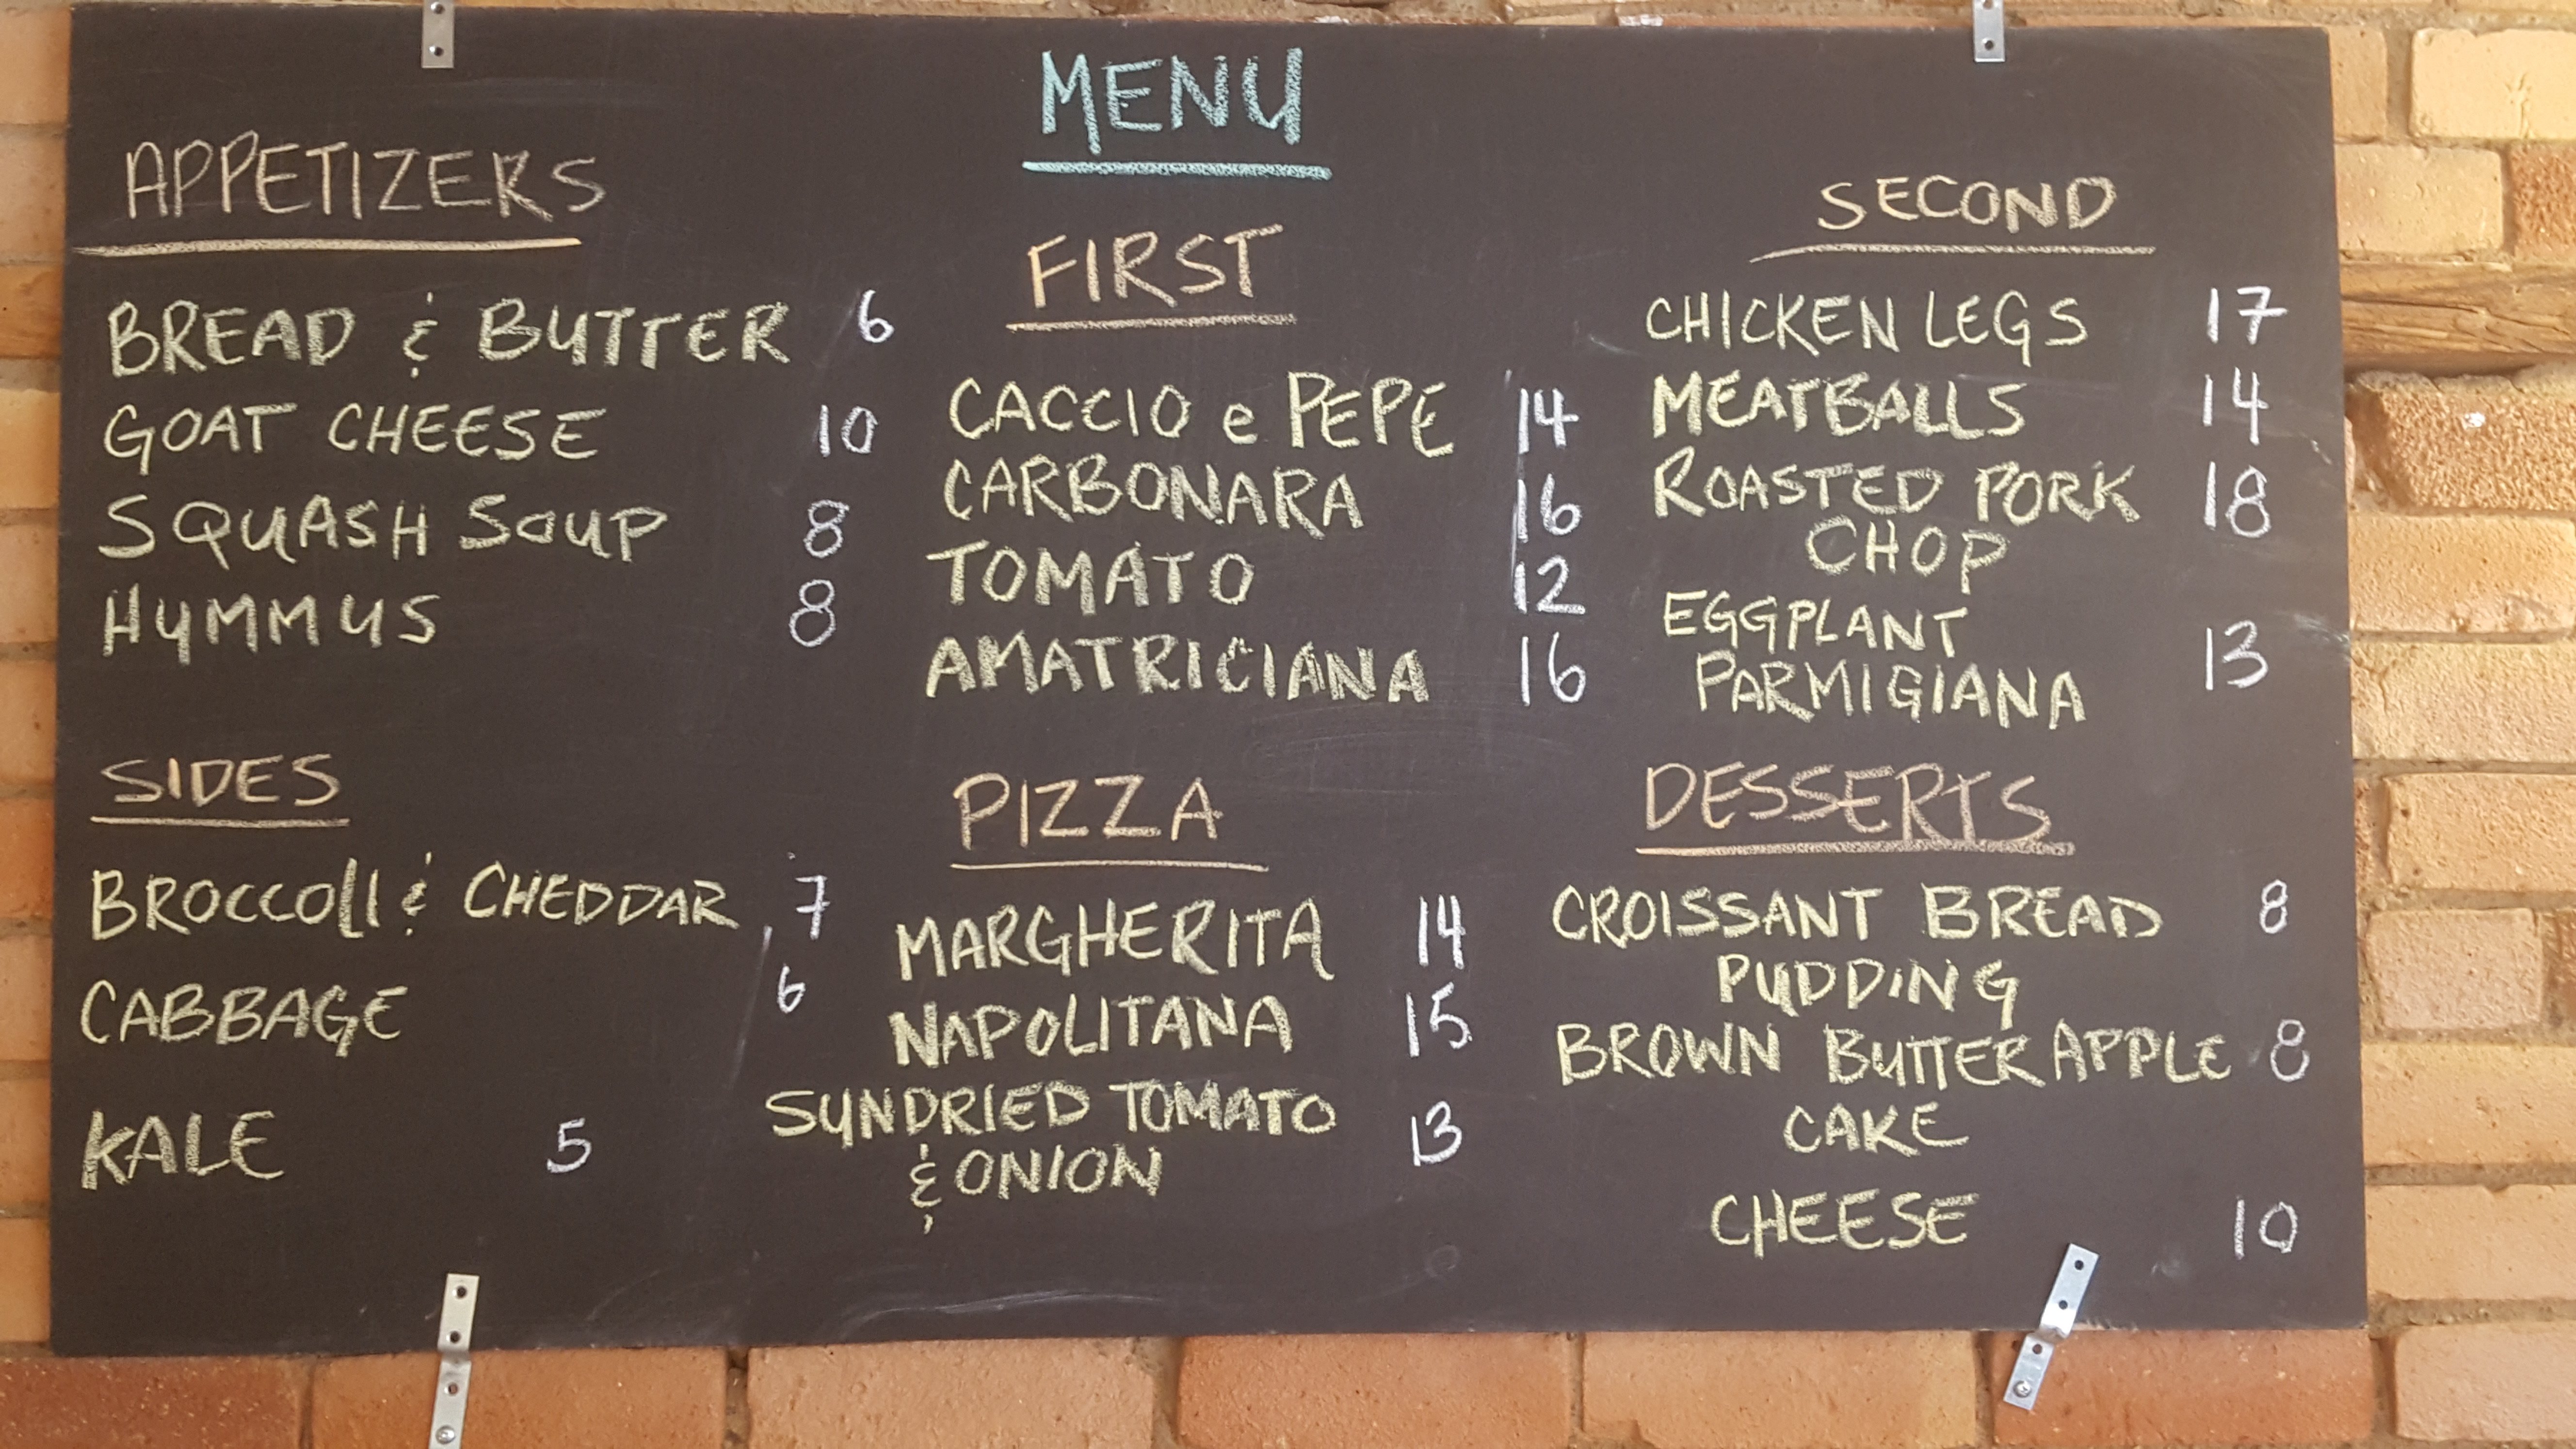 MENU
APPETIZERS
BREAD & BUTTER 6
GOAT CHEESE 10
SQUASH SOUP 8
HUMMUS 8
SIDES
BROCCOLI & CHEDDAR 7
CABBAGE 6
KALE 5
FIRST
CACCIO e PEPE 14
CARBONARA 16
TOMATO 12
AMATRICIANA 16
PIZZA
MARGHERITA 14
NAPOLITANA 15
SUNDRIED TOMATO 13
& ONION
SECOND
CHICKEN LEGS 17
MEATBALLS 14
ROASTED PORK 18
CHOP
EGGPLANT
PARMIGIANA 13
DESSERTS
CROISSANT BREAD 8
PUDDING
BROWN BUTTER APPLE 8
CAKE
CHEESE 10